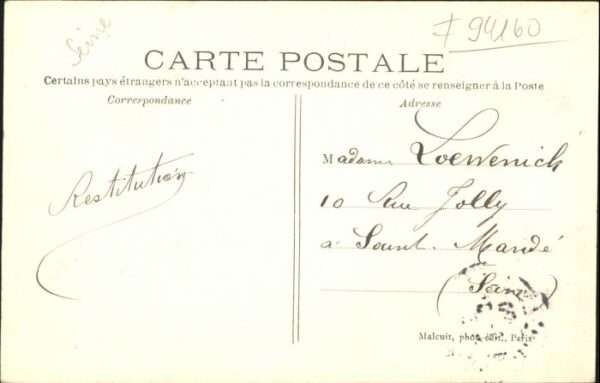 Seine
# 94160
CARTE POSTALE
Certains pays étrangers n'acceptant pas la correspondance de ce côté se renseigner à la Poste
Correspondance
Adresse
Restitution
Madame Loewenick
10 Rue Jolly
a Saint. Mandé
(Seine
Malcuit, phot. édit., Paris